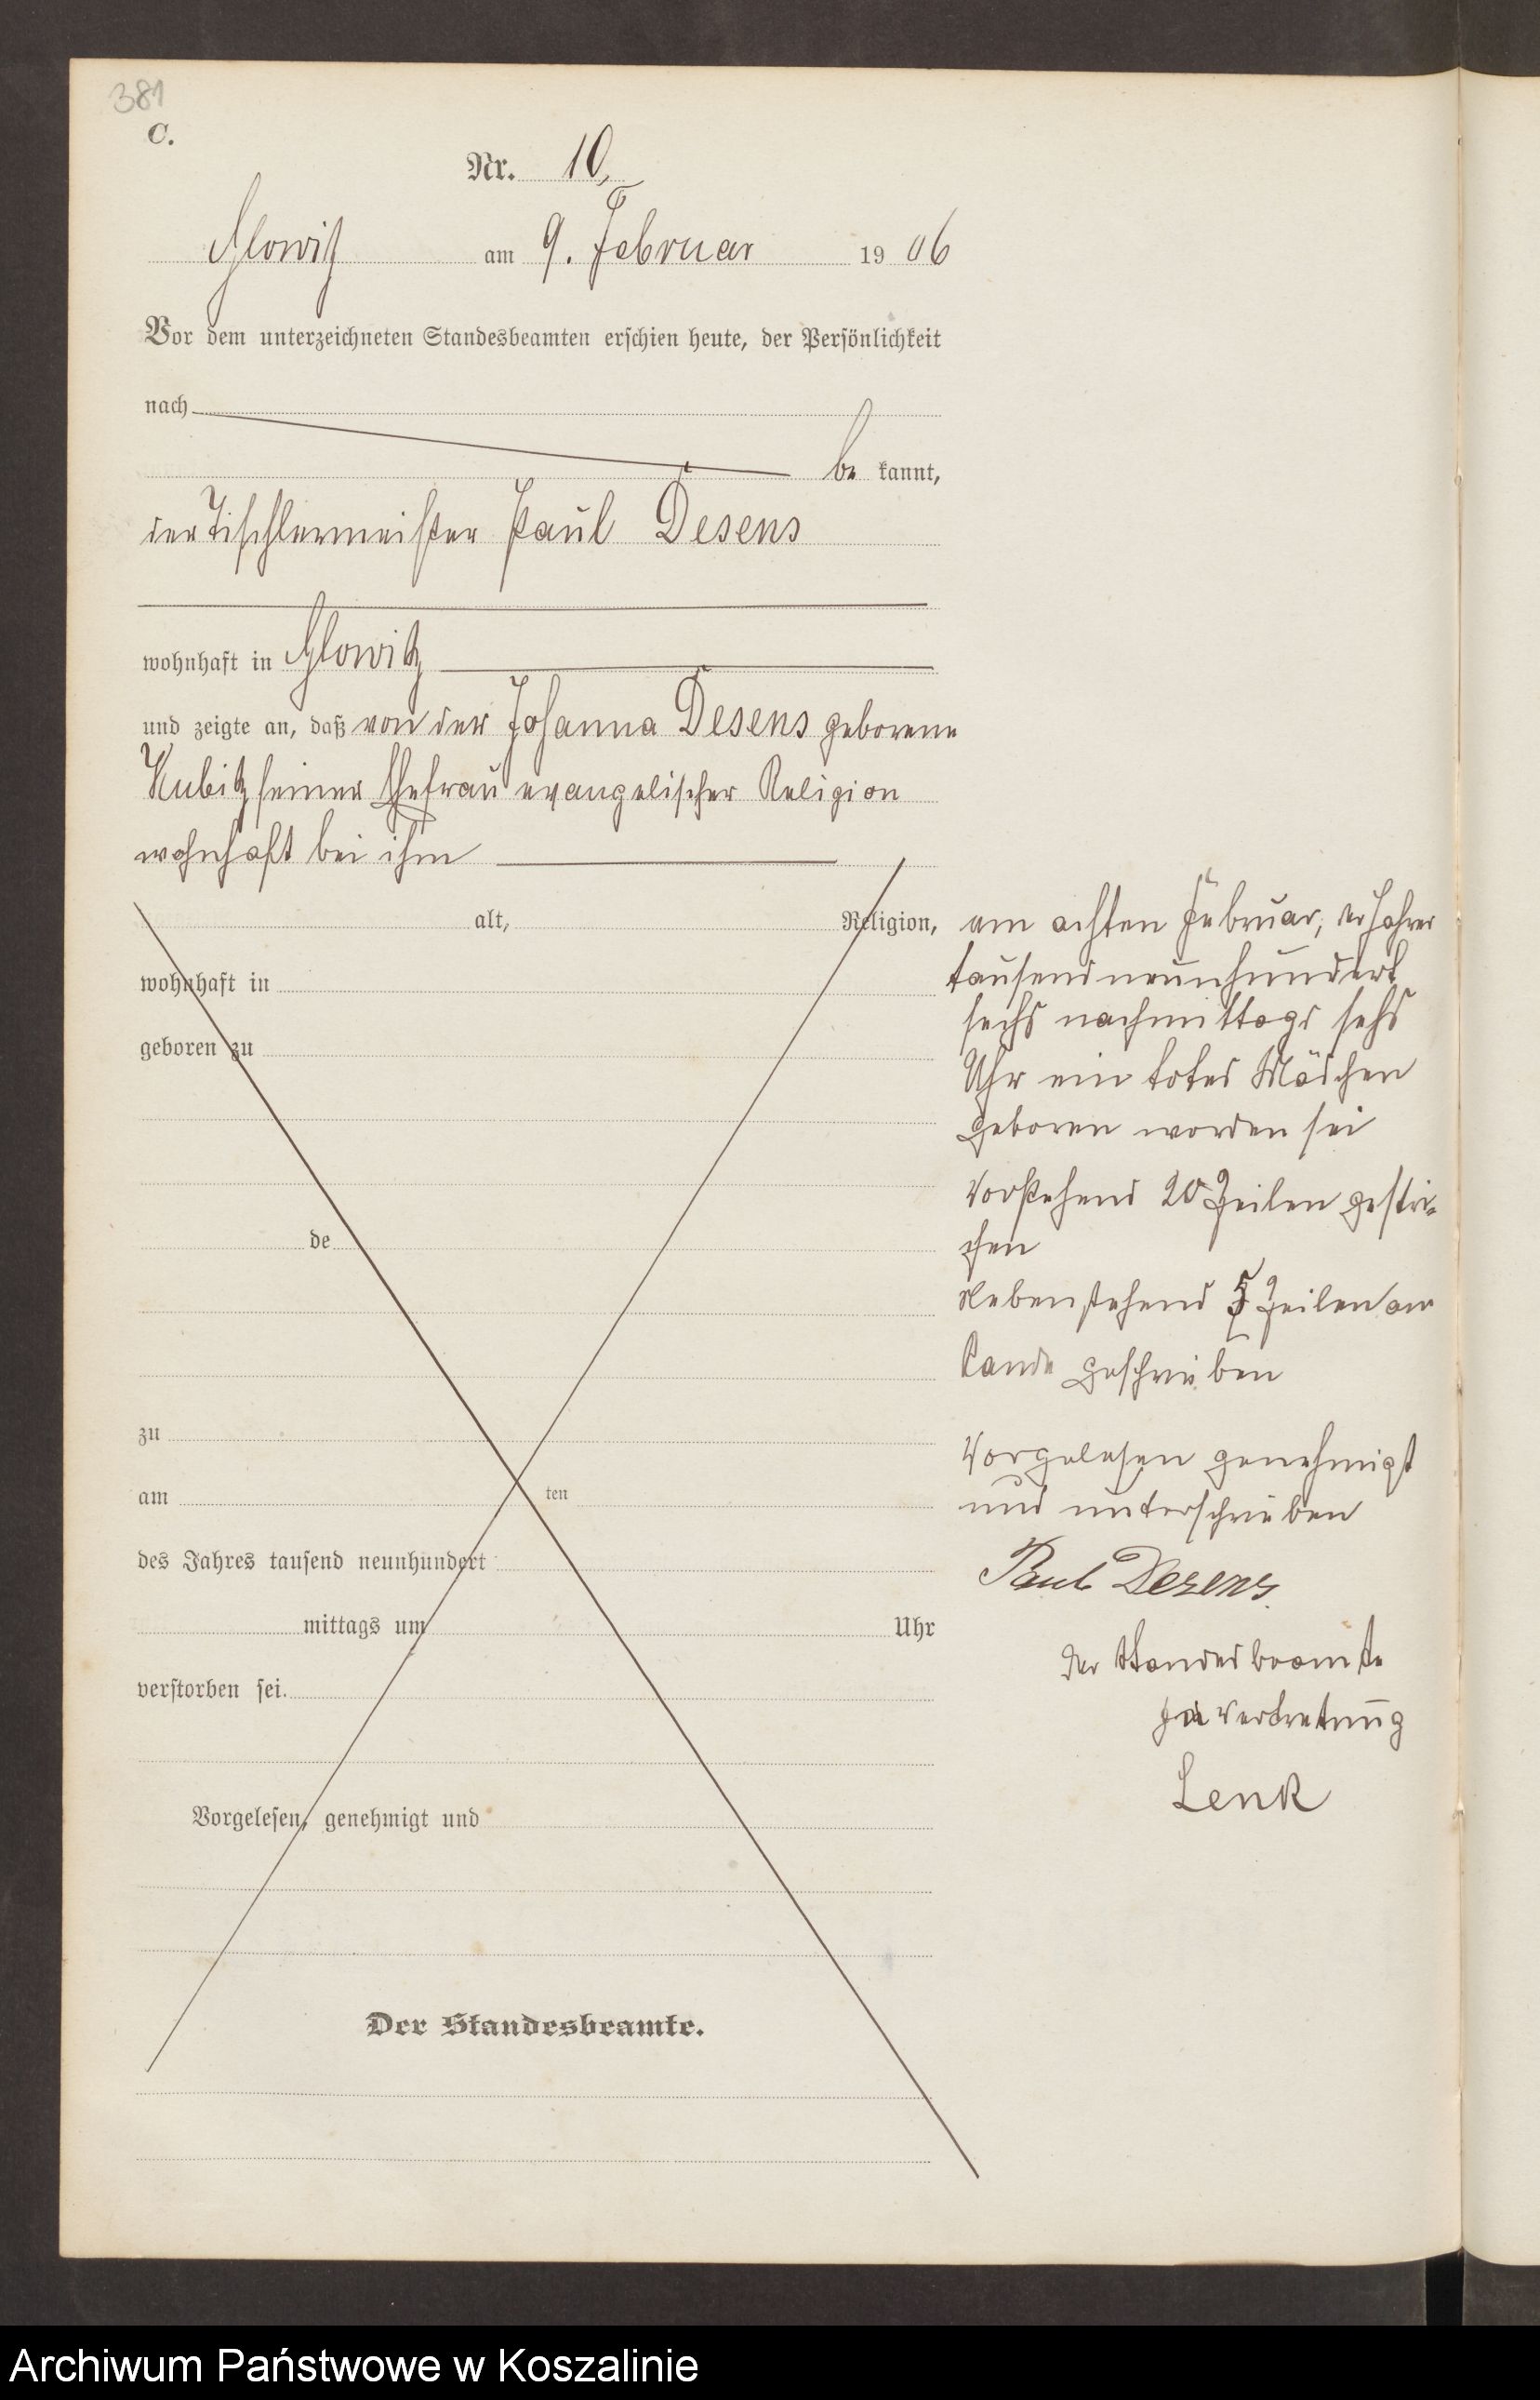 381
C.
Nr. 10,
Glowitz am 9. Februar 1906
Vor dem unterzeichneten Standesbeamten erschien heute, der Persönlichkeit
nach
be kannt,
der Tischlermeister Paul Desens
wohnhaft in Glowitz
und zeigte an, daß von der Johanna Desens geborene
Kubitz seiner Ehefrau evangelischer Religion
wohnhaft bei ihm
alt, Religion,
wohnhaft in
geboren zu
de
zu
am ten
des Jahres tausend neunhundert
mittags um Uhr
verstorben sei.
Vorgelesen, genehmigt und
Der Standesbeamte.
am achten Februar, des Jahres
tausend neunhundert
sechs nachmittags sehs
Uhr ein totes Mädchen
geboren worden sei
Vorstehend 20 Zeilen gestri-
chen
Nebenstehend 5 Zeilen am
Rande geschrieben
Vorgelesen genehmigt
und unterschrieben
Paul Desens.
Der Standesbeamte
Vertretung
Lenk
Archiwum Państwowe w Koszalinie